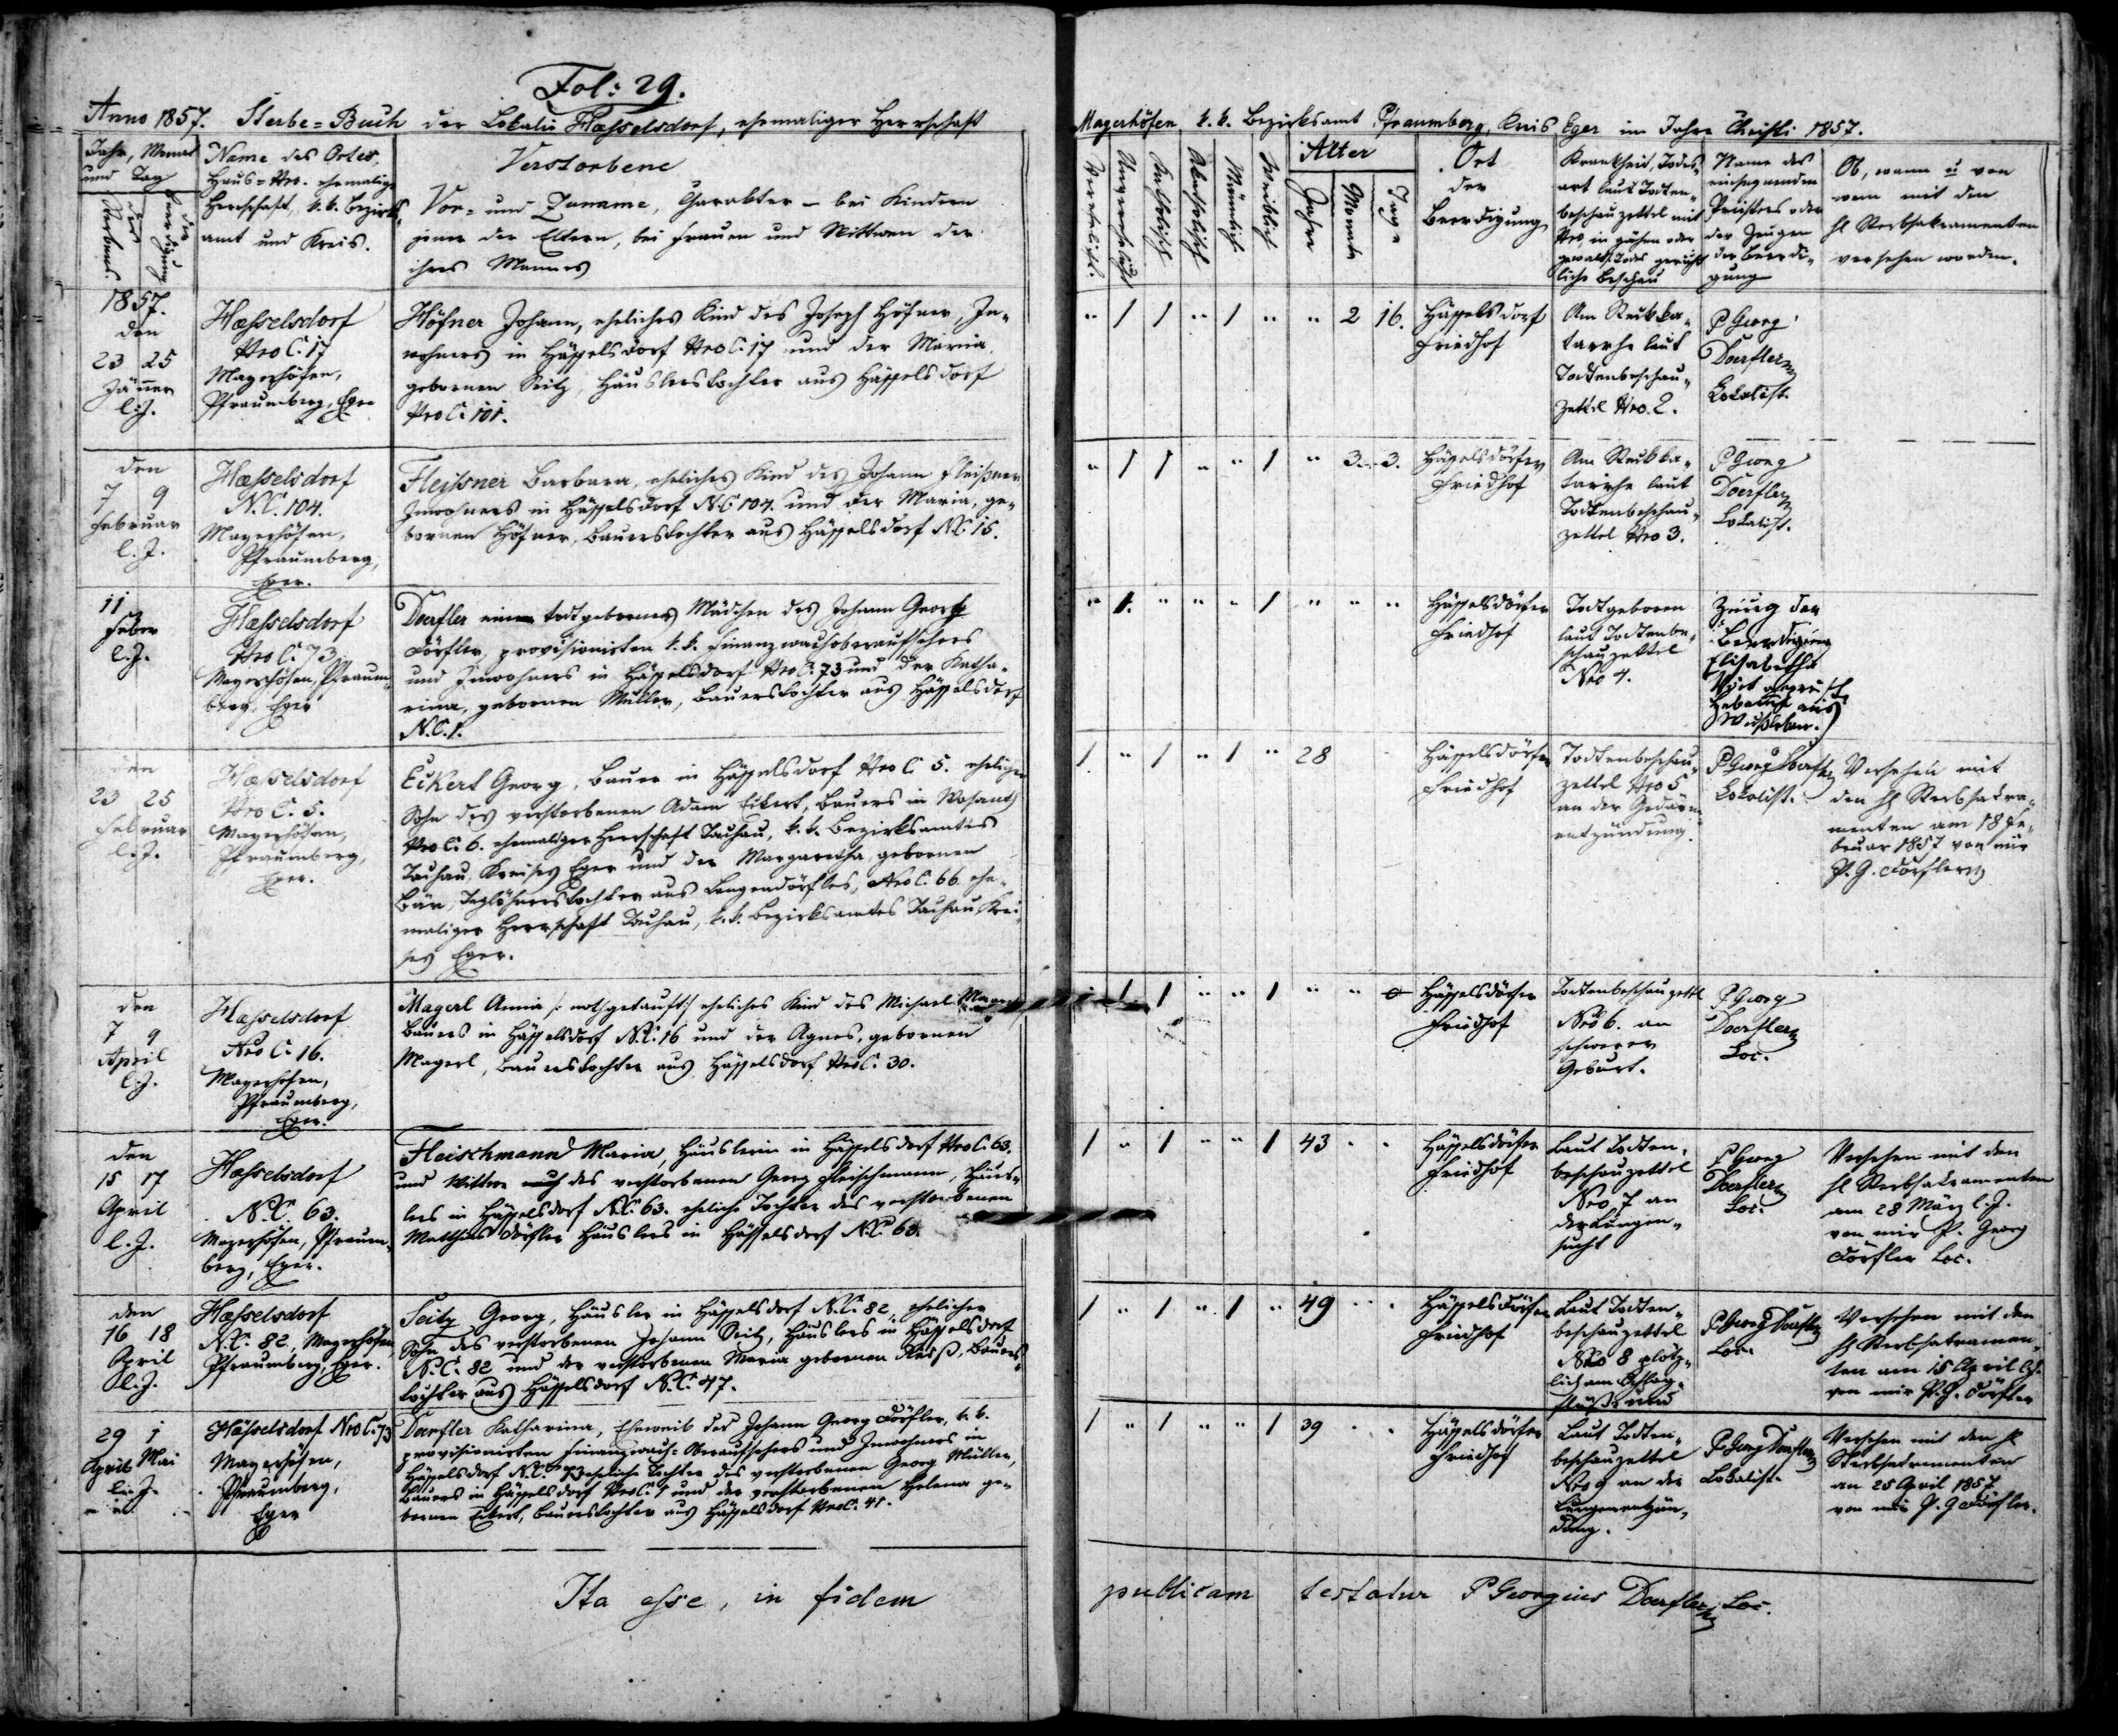 Fol: 29.
Anno 1857. Sterbe=Buch der Lokalie Hæsselsdorf, ehemaliger Herrschaft Mayerhöfen, k. k. Bezirksamt Pfraumberg, Kreis Eger im Jahre Christi 1857.
Jahr, Monat
und Tag
des
Sterbens.
der
Beerdigung
Name des Ortes,
Haus=Nro. ehemalige
Herrschaft, k. k. Bezirks-
amt und Kreis.
Verstorbene
Vor- und Zuname, Charakter – bei Kindern
jener der Eltern, bei Frauen und Wittwen der
ihres Mannes
Verehelicht.
Unverehelicht
Katholisch
Akatholisch
Männlich
Weiblich
Alter
Jahre
Monate
Tage
Ort
der
Beerdigung
Krankheit, Todes-
art laut Todten-
beschauzettel mit
Nro. in gähen oder
gewalts. Todes gericht-
liche Beschau
Name des
einsegnenden
Priesters oder
der Zeugen
der Beerdi-
gung
Ob, wann u von
wem mit den
hl Sterbsakramenten
versehen worden.
1857.
den
23 25
Jänner
l. J.
Hæsselsdorf
Nro C. 17
Mayerhöfen,
Pfraumberg, Eger
Höfner Johann, eheliches Kind des Joseph Höfner, In-
wohners in Hässelsdorf Nro C. 17 und der Maria,
gebornen Seitz, Häuslerstochter aus Hässelsdorf
Nro C. 101.
" 1 1 " 1 " " 2 16.
Hässelsdorf
Friedhof
Am Stickka-
tarrhe laut
Todtenbeschau-
zettel Nro. 2.
P Georg
Doerfler
Lokalist.
den
7 9
Februar
l. J.
Hæsselsdorf
N. C. 104.
Mayerhöfen,
Pfraumberg,
Eger.
Fleissner Barbara, eheliches Kind des Johann Fleißner
Inwohners in Hässelsdorf N. C 104. und der Maria, ge-
bornen Höfner, Bauerstochter aus Hässelsdorf N. C. 15.
" 1 1 " " 1 " 3. 3.
Hässelsdörfer
Friedhof
Am Stickka-
tarrhe laut
Todtenbeschau-
zettel Nro 3.
P Georg
Doerfler
Lokalist.
11
Feber
l. J.
Hæsselsdorf
Nro C. 73
Mayerhöfen, Pfraum-
berg, Eger
Doerfler ein todtgebornes Mädchen des Johann Georg
Dörfler, provisionirten k. k. Finanzwachoberaufsehers
und Inwohners in Hässelsdorf Nro C. 73 und der Katha-
rina, gebornen Müller, Bauerstochter aus Hässelsdorf
N. C. 1.
" 1. " " " 1 " " "
Hässelsdörfer
Friedhof
Todtgeboren
laut Todtenbe-
schauzettel
Nro 4.
Zeug der
Beerdigung
Elisabetha
geprüfte
Hebamme aus
den
23 25
Februar
l. J.
Hæsselsdorf
Nro C. 5.
Mayerhöfen,
Pfraumberg,
Eger.
Eckert Georg, Bauer in Hässelsdorf Nro C 5. ehelicher
Sohn des verstorbenen Adam Eckert, Bauers in Wosant
Nro C. 6. ehemaliger Herrschaft Tachau, k. k. Bezirksamtes
Tachau, Kreises Eger und der Margaretha gebornen
Bär, Taglöhnerstochter aus Langendörflas, Nro C. 66 ehe-
maliger Herrschaft Tachau, k. k. Bezirksamtes Tachau, Krei-
ses Eger.
1 " 1 " 1 " 28
Hässelsdörfer
Friedhof
Todtenbeschau-
zettel Nro 5
an der Gedärm-
entzündung.
P Georg Doerfler
Lokalist.
Versehen mit
den hl Sterbsakra-
menten am 18 Fe-
bruar 1857 von mir
P. G. Dörfler
den
7 9
April
l. J.
Hæsselsdorf
Nro C. 16.
Mayerhöfen,
Pfraumberg,
Eger.
Magerl Anna /: nothgetauft :/ eheliches Kind des Michael Magerl
Bauers in Hässelsdorf N. C. 16 und der Agnes, gebornen
Magerl, Bauerstochter aus Hässelsdorf Nro C. 30.
" 1 1 " " 1 " " 0
Hässelsdörfer
Friedhof
Todtenbeschauzettl
Nro 6. an
schwerer
Geburt.
P Georg
Doerfler
Loc.
den
15 17
April
l. J.
Hæsselsdorf
N. C. 63.
Mayerhöfen, Pfraum-
berg, Eger.
Fleischmann Maria, Häuslerin in Hässelsdorf Nro C. 63.
und Wittwe nach des verstorbenen Georg Fleischmann, Häus-
lers in Hässelsdorf N. C. 63. eheliche Tochter des verstorbenen
Matthias Dörfler Häuslers in Hässelsdorf N. C. 63.
1 " 1 " " 1 43 " "
Hässelsdörfer
Friedhof
Laut Todten-
beschauzettel
Nro 7 an
der Lungen-
sucht
P Georg
Doerfler
Loc.
Versehen mit den
hl Sterbsakramenten
am 28 März l. J.
von mir P. Georg
Dörfler Loc.
den
16 18
April
l. J.
Hæsselsdorf
N. C. 82, Mayerhöfen
Pfraumberg, Eger.
Seitz Georg, Häusler in Hässelsdorf N. C. 82, ehelicher
Sohn des verstorbenen Johann Seitz, Häuslers in Hässelsdorf
N. C. 82 und der verstorbenen Maria gebornen Bauers-
tochter aus Hässelsdorf N. C. 47.
1 " 1 " 1 " 49 " "
Hässelsdörfer
Friedhof
Laut Todten-
beschauzettel
Nro 8 plötz-
lich am Schlag-
P Georg Doerfler
Loc.
Versehen mit den
hl Sterbsakramen-
ten am 15 April l. J.
von mir P. G. Dörfler
29 1
April Mai
l. J.
Hässelsdorf Nro C. 73
Mayerhöfen,
Pfraumberg,
Eger
Doerfler Katharina, Eheweib des Johann Georg Dörfler, k. k.
provisionirten Finanzwach-Oberaufsehers und Inwohners in
Hässelsdorf N. C. 73 eheliche Tochter des verstorbenen Georg Müller,
Bauers in Hässelsdorf Nro C. 1 und der verstorbenen Helena ge-
bornen Eckert, Bauerstochter aus Hässelsdorf Nro C. 41.
1 " 1 " " 1 39 " "
Hässelsdörfer
Friedhof
Laut Todten-
beschauzettel
Nro 9 an der
Lungenentzün-
dung.
P Georg Doerfler
Lokalist.
Versehen mit den hl
Sterbsakramenten
am 25 April 1857
von mir P. G Dörfler.
Ita esse, in fidem publicam testatur P Georgius Doerfler Loc.